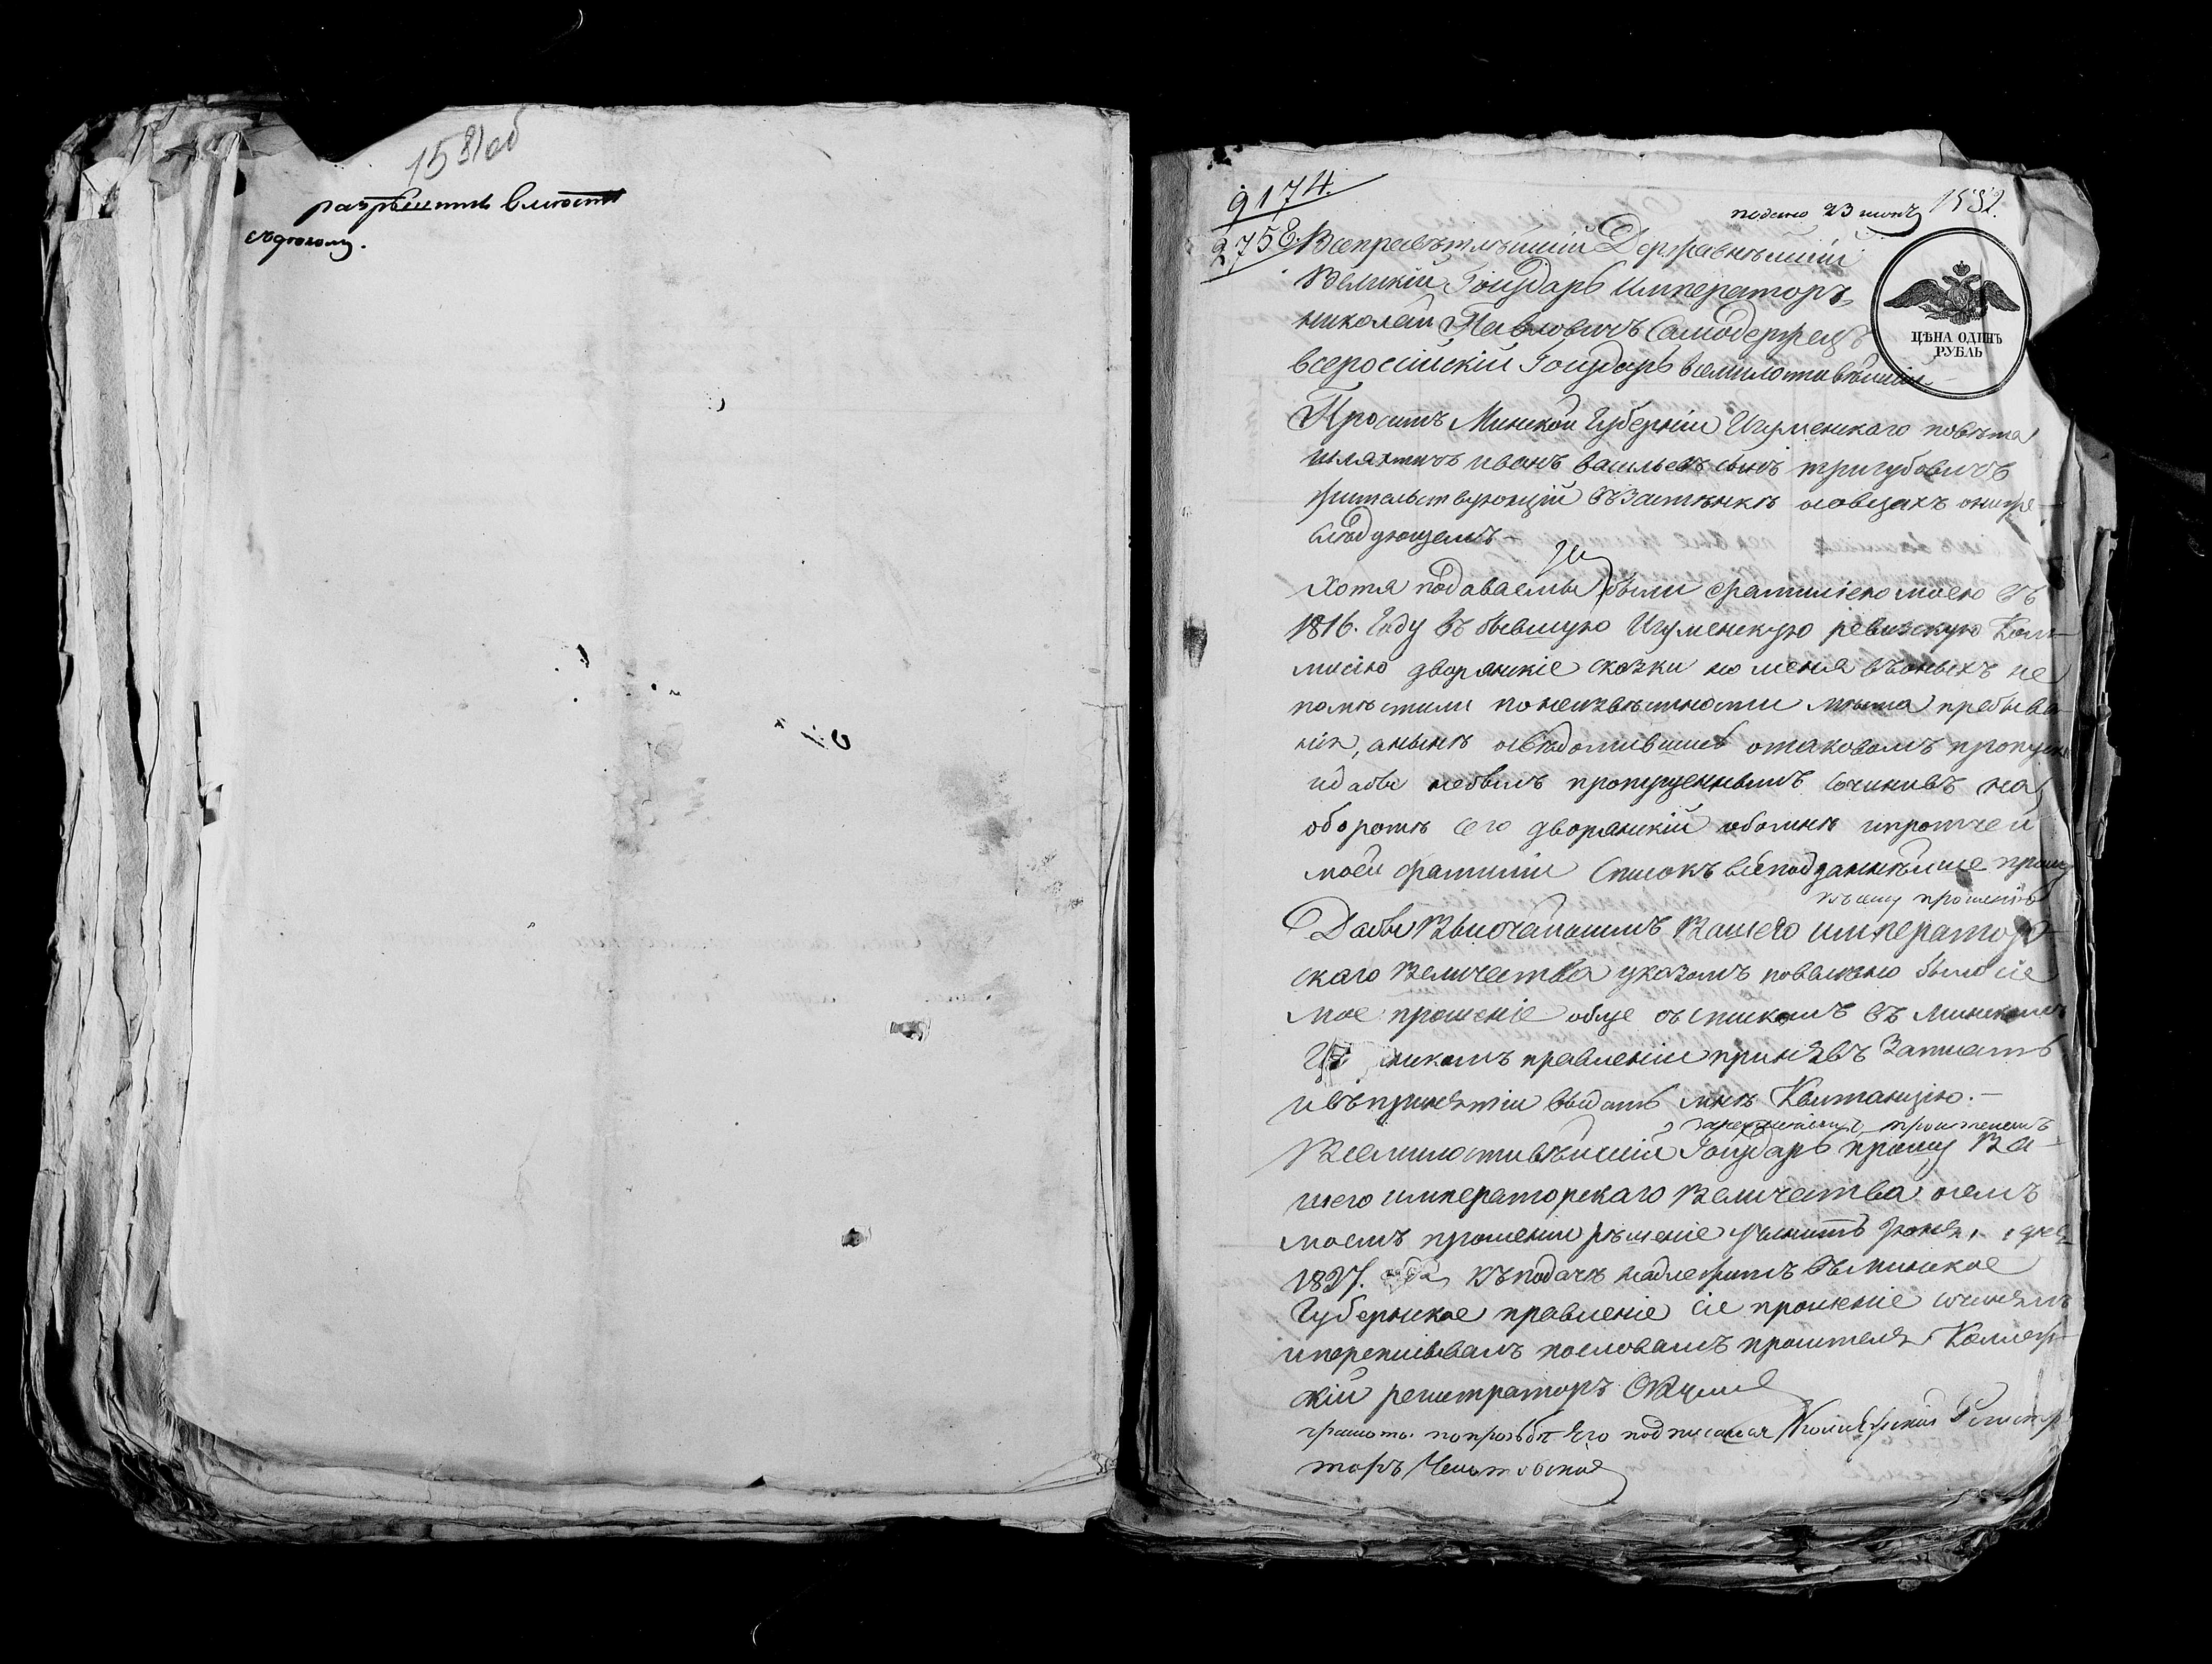 1581об
разрѣшить вмѣстѣ
съ другому.
9174.
2758.
подано 23 июня 1582.
ЦѢНА ОДИНЪ
РУБЛЬ
Всепресвѣтлѣйшій Державнѣйшій
Великій Государь Императоръ
Николай Павловичъ Самодержецъ
всеросійскій Государь всемилостивѣйшій
Проситъ Минской Губерніи Игуменскаго повѣта
шляхтичъ иванъ васильевъ сынъ тригубовичъ
жительствующій въ Застѣнкѣ осовцахъ о ниже
слѣдующемъ
Хотя подаваемы были фамиліею моею въ
1816. Году въ бывшую Игуменскую ревизскую Ком-
мисію дворянскіе сказки но меня въ оныхъ не
помѣстили по неизвѣстности мѣста пребыва
нія, а нынѣ освѣдомившись о таковомъ пропускѣ
и дабы не былъ пропущеннымъ сочинивъ на
оборотѣ сего дворянскій обо мнѣ и протчей
моей фамиліи Списокъ всеподданнѣйше прошу
къ сему прошенію
Дабы Высочайшимъ Вашего император-
скаго Величества указомъ повелено было сіе
мое прошеніе обще съ спискомъ въ Минскомъ
правленіи принявъ Записать
и въ принятіи выдать мнѣ Квитанцію.
Всемилостивѣйшій Государь прошу Ва-
шего императорскаго Величества о семъ
моемъ прошеніи рѣшеніе учинить
1827. года къ подачѣ надлежитъ въ минское
Губернское правленіе сіе прошеніе сочинялъ
и переписывалъ пословамъ просителя Коллеж-
скій регистраторъ
по прозьбѣ его подписался Колежскій Регистра
торъ